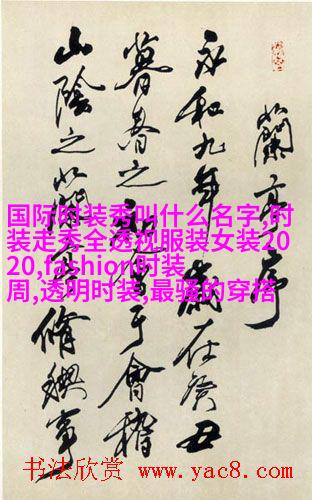 蘭亭序
永和九年歲在癸丑
暮春之初會于會稽
山陰之蘭亭脩禊事
国际时装秀叫什么名字,时
装走秀全透视服装女装20
20,fashion时装
周,透明时装,最骚的穿搭
书法欣赏 www.yac8.com